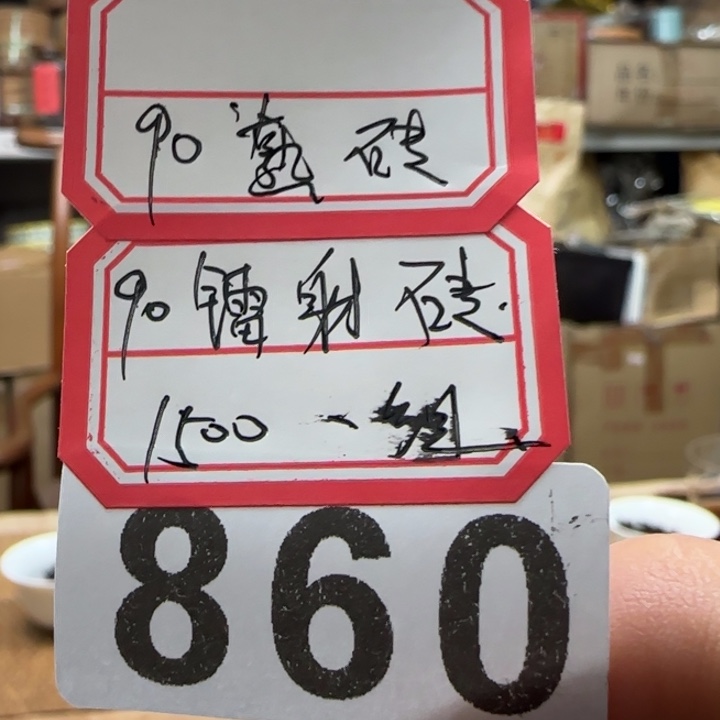 90熟砖
90镭射砖
1500一组
860